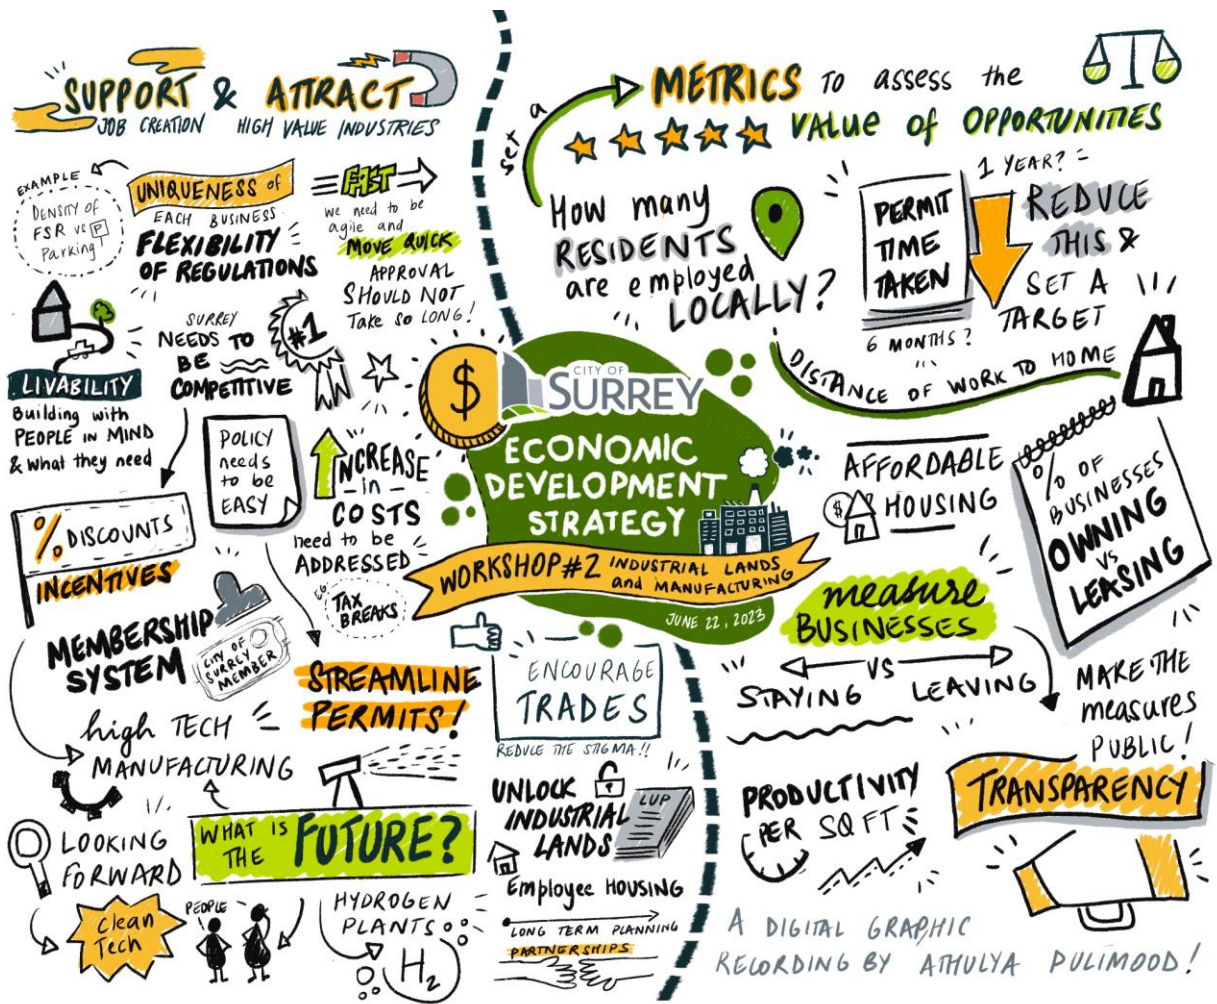 SUPPORT & ATTRACT
JOB CREATION HIGH VALUE INDUSTRIES
EXAMPLE
DENSITY OF
FSR vs P
Parking
UNIQUENESS of
EACH BUSINESS
FLEXIBILITY
OF REGULATIONS
FAST
We need to be
agile and
MOVE QUICK
APPROVAL
SHOULD NOT
Take so LONG!
LIVABILITY
Building with
PEOPLE IN MIND
& what they need
SURREY
NEEDS TO
BE
COMPETITIVE
#1
POLICY
needs
to be
EASY
INCREASE
in
COSTS
need to be
ADDRESSED
EG.
TAX
BREAKS
% DISCOUNTS
INCENTIVES
MEMBERSHIP
SYSTEM
CITY OF
SURREY
MEMBER
STREAMLINE
PERMITS!
high TECH
MANUFACTURING
LOOKING
FORWARD
Clean
Tech
WHAT IS
THE FUTURE?
PEOPLE
HYDROGEN
PLANTS
H2
$
CITY OF
SURREY
ECONOMIC
DEVELOPMENT
STRATEGY
WORKSHOP #2 INDUSTRIAL LANDS
and MANUFACTURING
JUNE 22, 2023
ENCOURAGE
TRADES
REDUCE THE STIGMA!!
UNLOCK
INDUSTRIAL
LANDS
LUP
Employee HOUSING
LONG TERM PLANNING
PARTNERSHIPS
set a
METRICS TO assess the
VALUE of OPPORTUNITIES
HOW many
RESIDENTS
are employed
LOCALLY?
PERMIT
TIME
TAKEN
6 MONTHS?
1 YEAR?
REDUCE
THIS &
SET A
TARGET
DISTANCE OF WORK TO HOME
AFFORDABLE
HOUSING
$
% OF
BUSINESSES
OWNING
VS
LEASING
measure
BUSINESSES
STAYING VS LEAVING
MAKE THE
measures
PUBLIC!
TRANSPARENCY
PRODUCTIVITY
PER SQ FT
A DIGITAL GRAPHIC
RECORDING BY ATHULYA PULIMOOD!